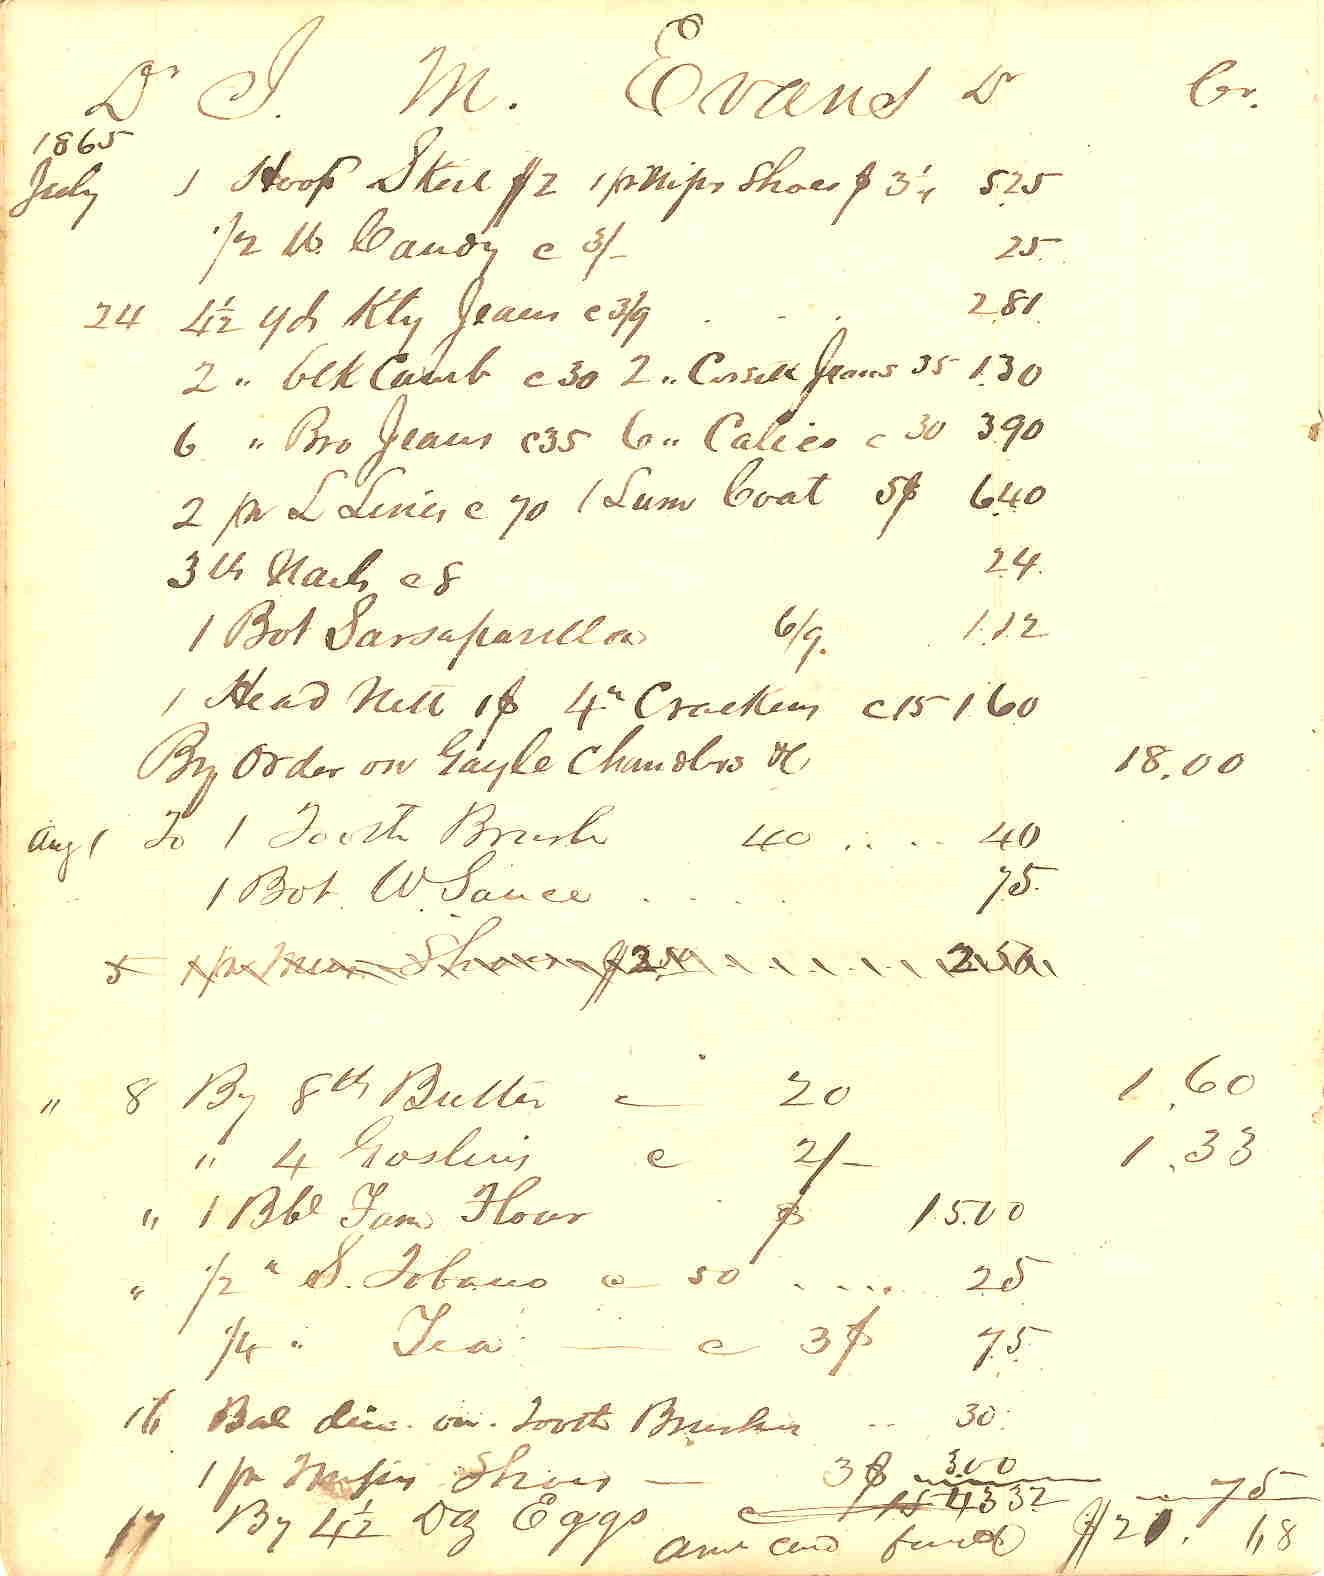 Dr J. M. Evans Dr Cr.
1865
July 1 Hoop Skert $2 1 pr Misses Shoes $ 3¼ 5.25
1/2 lb. Candy c 3/- 25
24 4½ yds Kty Jeans c 3/9 2.81
2 " blk Camb c 30 2 " Corsett Jeans 35 1.30
6 " Bro Jeans c 35 6 " Calico c 30 3.90
2 pr L c 70 1 Coat 5$ 6.40
3 lb Nails c 8 24
1 Bot Sarsaparilloa 6/9. 1.12
1 Head Nett 1$ 4 " Crackers c 15 1.60
By Order on Gayle Chandlrs &c 18.00
Aug 1 To 1 Tooth Brush 40 .. .. 40
1 Bot. W. Sauce . . . . 75
5 1 pr Shoes $2.50 2.50
" 8 By 8 lb Butter c 20 1.60
" 4 Goslins c 2/- 1.33
" 1 Bbl Fam Flour $ 15.00
" 1/2 " S. Tobacco c 50 .... 25
1/4 " Tea — c 3$ 75
16 Bal due on Tooth Brushes .. 30
1 pr Shoes — 3$ 3.00
17 By 4½ Dz Eggs c 15 43 32 75
Amt Card $21.68